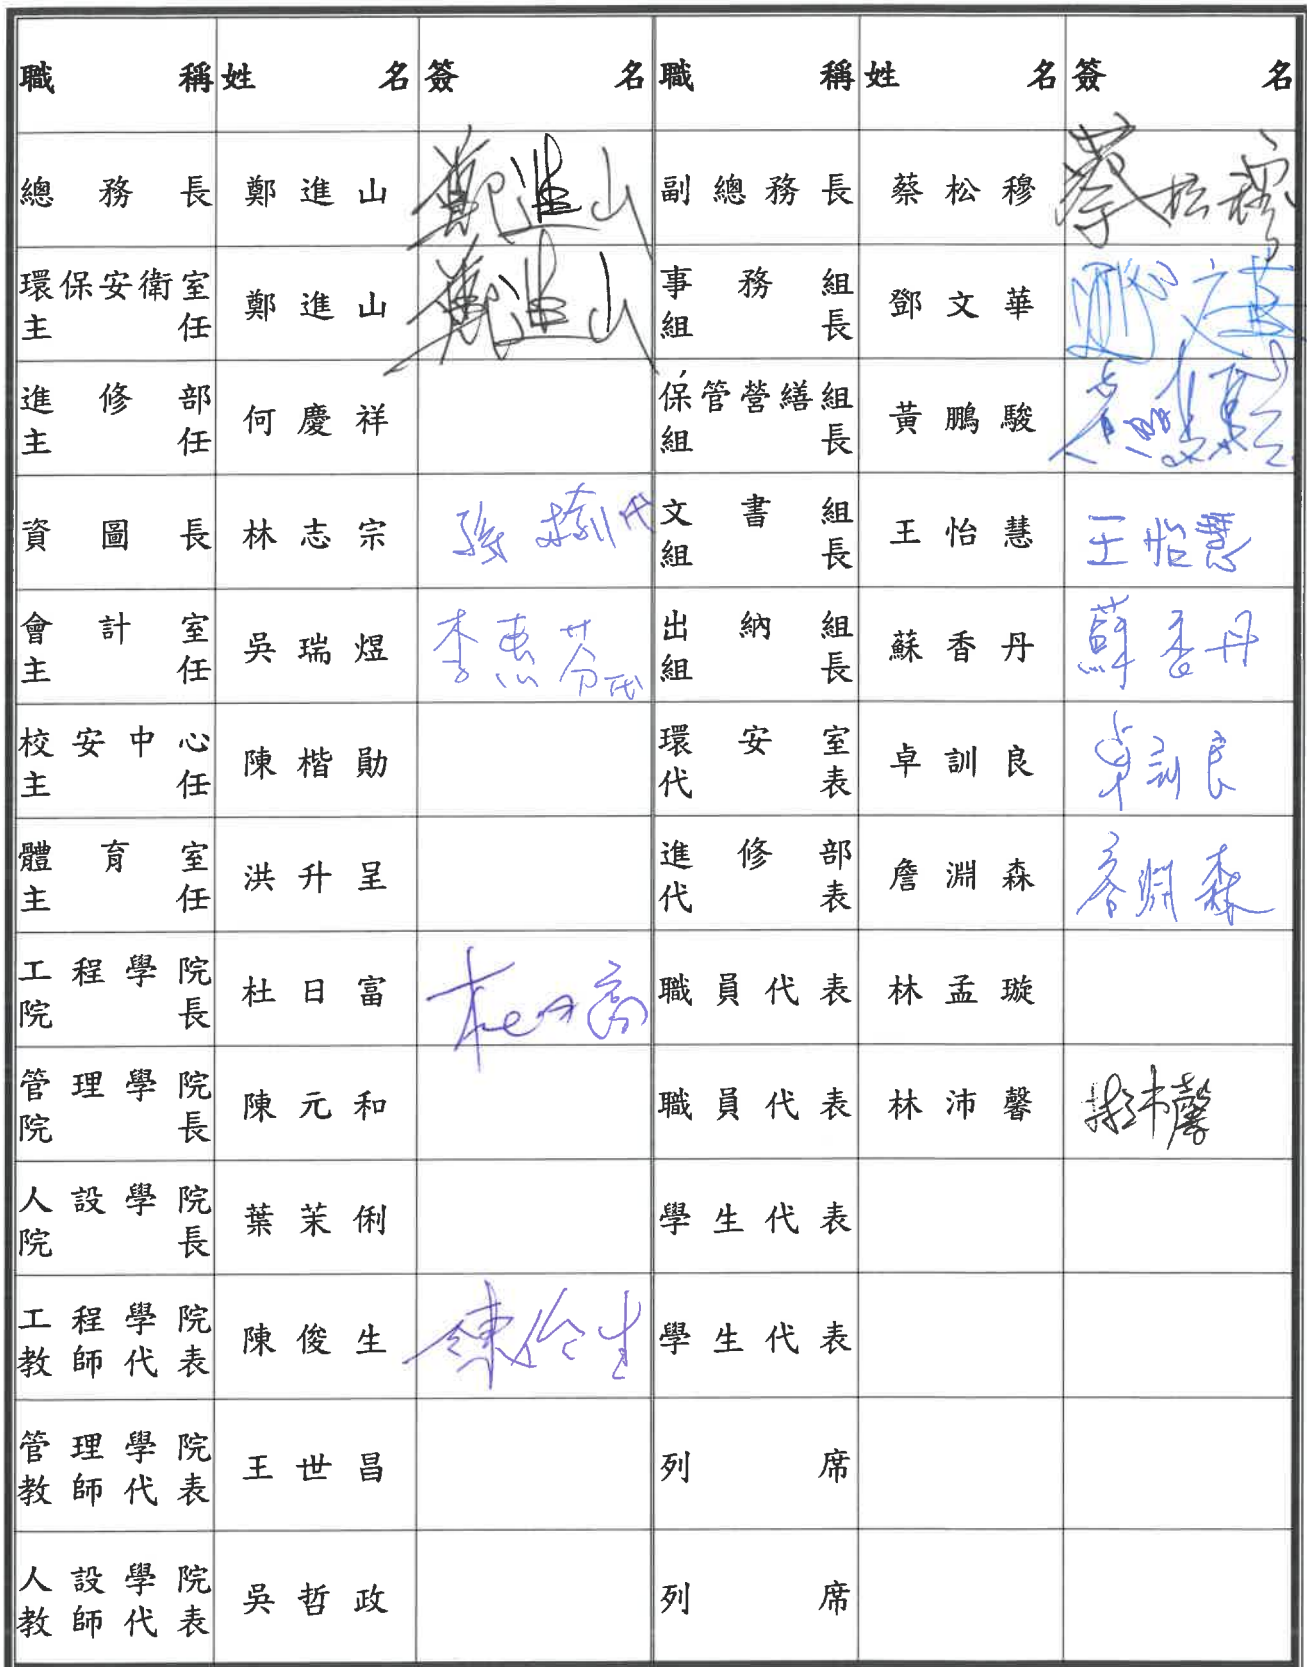 職稱 姓名 簽名 職稱 姓名 簽名
總務長 鄭進山 鄭進山 副總務長 蔡松穆 蔡松穆
環保安衛室主任 鄭進山 鄭進山 事務組組長 鄧文華 鄧文華
進修部主任 何慶祥 保管營繕組組長 黃鵬駿
資圖長 林志宗 代 文書組組長 王怡慧 王怡慧
會計室主任 吳瑞煜 李惠芬代 出納組組長 蘇香丹 蘇香丹
校安中心主任 陳楷勛 環安室代表 卓訓良 卓訓良
體育室主任 洪升呈 進修部代表 詹淵森 詹淵森
工程學院院長 杜日富 杜日富 職員代表 林孟璇
管理學院院長 陳元和 職員代表 林沛馨 林沛馨
人設學院院長 葉茉俐 學生代表
工程學院教師代表 陳俊生 陳俊生 學生代表
管理學院教師代表 王世昌 列席
人設學院教師代表 吳哲政 列席